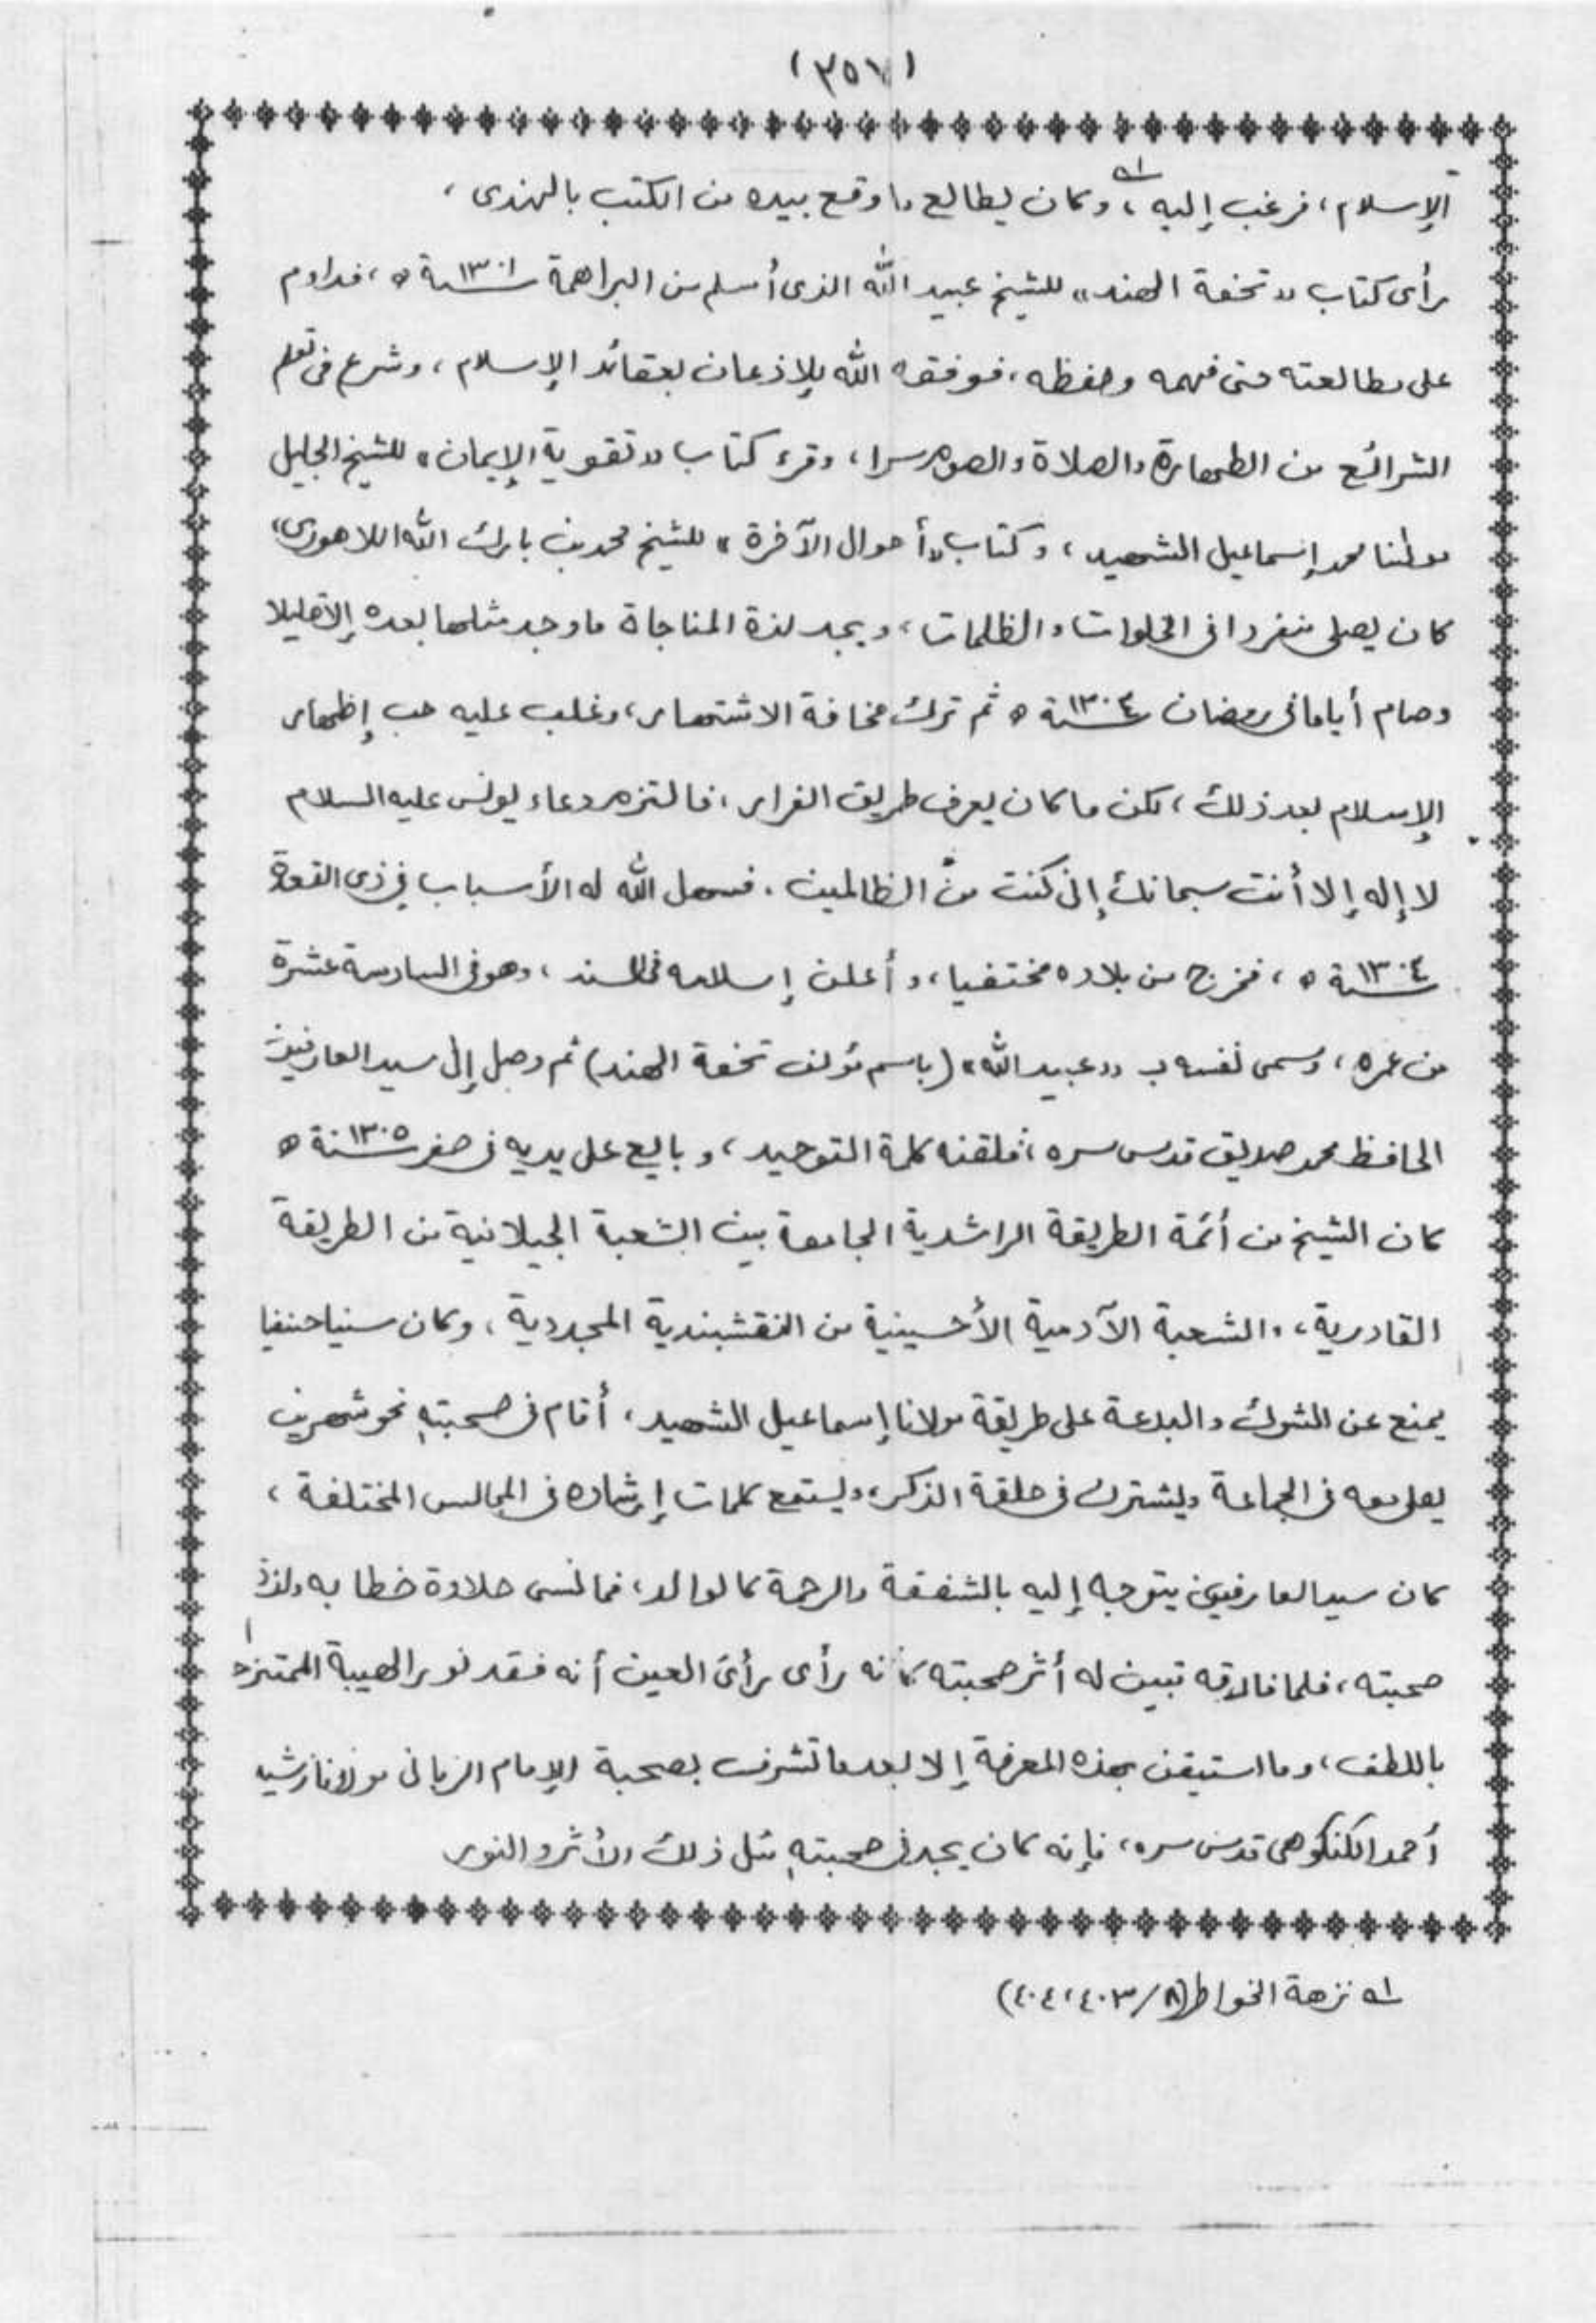 (٣٥٧)
الإسلام، فرغب إليه ١ه، وكان يطالع ما وقع بيده من الكتب بالهندى،
رأى كتاب «تحفة الهند» للشيخ عبيد الله الذى أسلم من البراهمة سنة ١٣٠١ ه، فداوم
على مطالعته حتى فهمه وحفظه، فوفقه الله للإذعان بعقائد الإسلام، وشرع فى تعلم
الشرائع من الطهارة والصلاة والصوم سرا، وقرء كتاب «تقوية الإيمان» للشيخ الجليل
مولانا محمد إسماعيل الشهيد، وكتاب «أحوال الآخرة» للشيخ محمد بن بارك الله اللاهورى،
كان يصلى منفردا فى الخلوات والظلمات، ويجد لذة المناجاة ما وجد مثلها بعده إلا قليلا
وصام أياما فى رمضان سنة ١٣٠٤ ه ثم ترك مخافة الاشتهار، وغلب عليه حب إظهار
الإسلام بعد ذلك، لكن ما كان يعرف طريق الفرار، فالتزم دعاء يونس عليه السلام
لا إله إلا أنت سبحانك إنى كنت من الظالمين. فسهل الله له الأسباب فى ذى القعدة
سنة ١٣٠٤ ه، فخرج من بلاده مختفيا، وأعلن إسلامه فى السند، وهو فى السادسة عشرة
من عمره، وسمى نفسه ب «عبيد الله» (باسم مؤلف تحفة الهند) ثم وصل إلى سيد العارفين
الحافظ محمد صديق قدس سره، فلقنه كلمة التوحيد، وبايع على يديه فى صفر سنة ١٣٠٥ ه
كان الشيخ من أئمة الطريقة الراشدية الجامعة بين الشعبة الجيلانية من الطريقة
القادرية، والشعبة الآدمية الأحسينية من النقشبندية المجددية، وكان سنيا حنفيا
يمنع عن الشرك والبدعة على طريقة مولانا إسماعيل الشهيد، أقام فى صحبته نحو شهرين
يصلى معه فى الجماعة ويشترك فى حلقة الذكر، ويستمع كلمات إرشاده فى المجالس المختلفة،
كان سيد العارفين يتوجه إليه بالشفقة والرحمة كالوالد، فما نسى حلاوة خطابه ولذة
صحبته، فلما فارقه تبين له أثر صحبته كأنه رأى رأى العين أنه فقد نور الهيبة الممتزج
باللطف، وما استيقن بهذه المعرفة إلا بعد ما تشرف بصحبة الإمام الربانى مولانا رشيد
أحمد الكنكوهى قدس سره، فإنه كان يجد فى صحبته مثل ذلك الأثر والنور
١ه نزهة الخواطر (٨/٤٠٣، ٤٠٤)